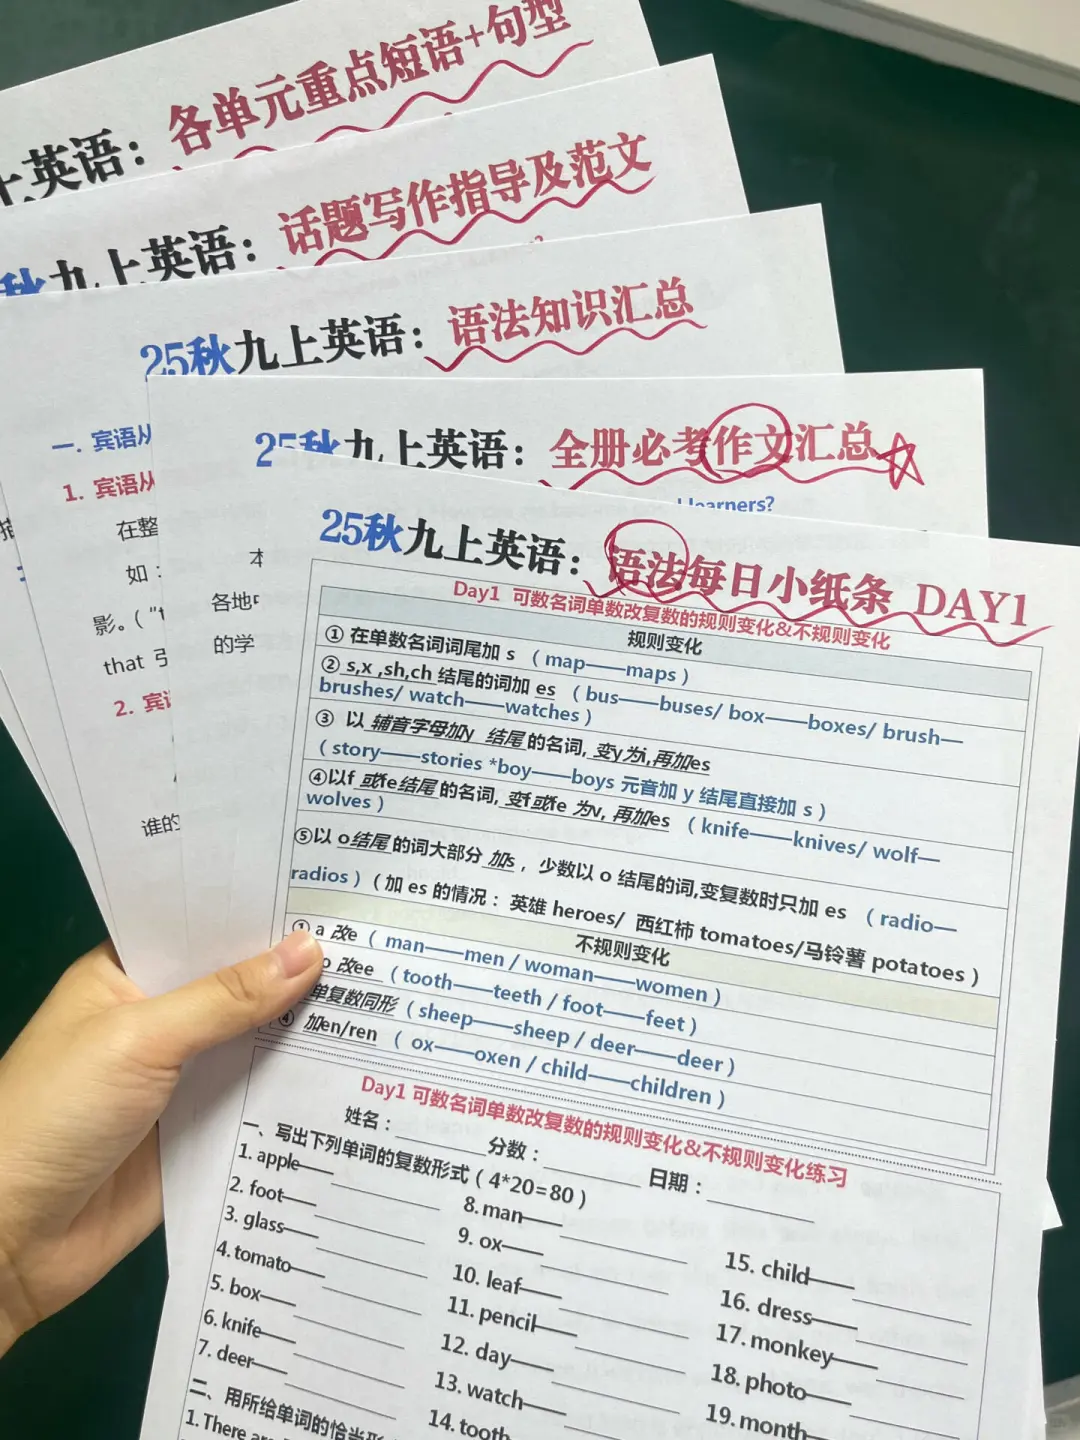 上英语：各单元重点短语+句型
秋九上英语：话题写作指导及范文
25秋九上英语：语法知识汇总
一. 宾语从
1. 宾语从
在整
如：
影。（“t
that 引
2. 宾语
谁的
25秋九上英语：全册必考作文汇总
learners?
本
各地中
的学
25秋九上英语：语法每日小纸条 DAY1
Day1 可数名词单数改复数的规则变化&不规则变化
规则变化
① 在单数名词词尾加 s （map——maps）
② s,x ,sh,ch 结尾的词加 es （bus——buses/ box——boxes/ brush—
brushes/ watch——watches）
③ 以 辅音字母加y 结尾的名词, 变y为i,再加es
（story——stories *boy——boys 元音加 y 结尾直接加 s）
④以f 或fe结尾的名词, 变f或fe 为v, 再加es （knife——knives/ wolf—
wolves）
⑤以 o结尾的词大部分 加s ，少数以 o 结尾的词,变复数时只加 es （radio—
radios）（加 es 的情况：英雄 heroes/ 西红柿 tomatoes/马铃薯 potatoes）
不规则变化
① a 改e （man——men / woman——women）
o 改ee （tooth——teeth / foot——feet）
单复数同形（sheep——sheep / deer——deer）
④ 加en/ren （ox——oxen / child——children）
Day1 可数名词单数改复数的规则变化&不规则变化练习
姓名：________ 分数：________ 日期：________
一、写出下列单词的复数形式（4*20=80）
1. apple——
2. foot——
3. glass——
4. tomato——
5. box——
6. knife——
7. deer——
8. man——
9. ox——
10. leaf——
11. pencil——
12. day——
13. watch——
14. tooth
15. child——
16. dress——
17. monkey——
18. photo——
19. month——
二、用所给单词的恰当形
1. There are